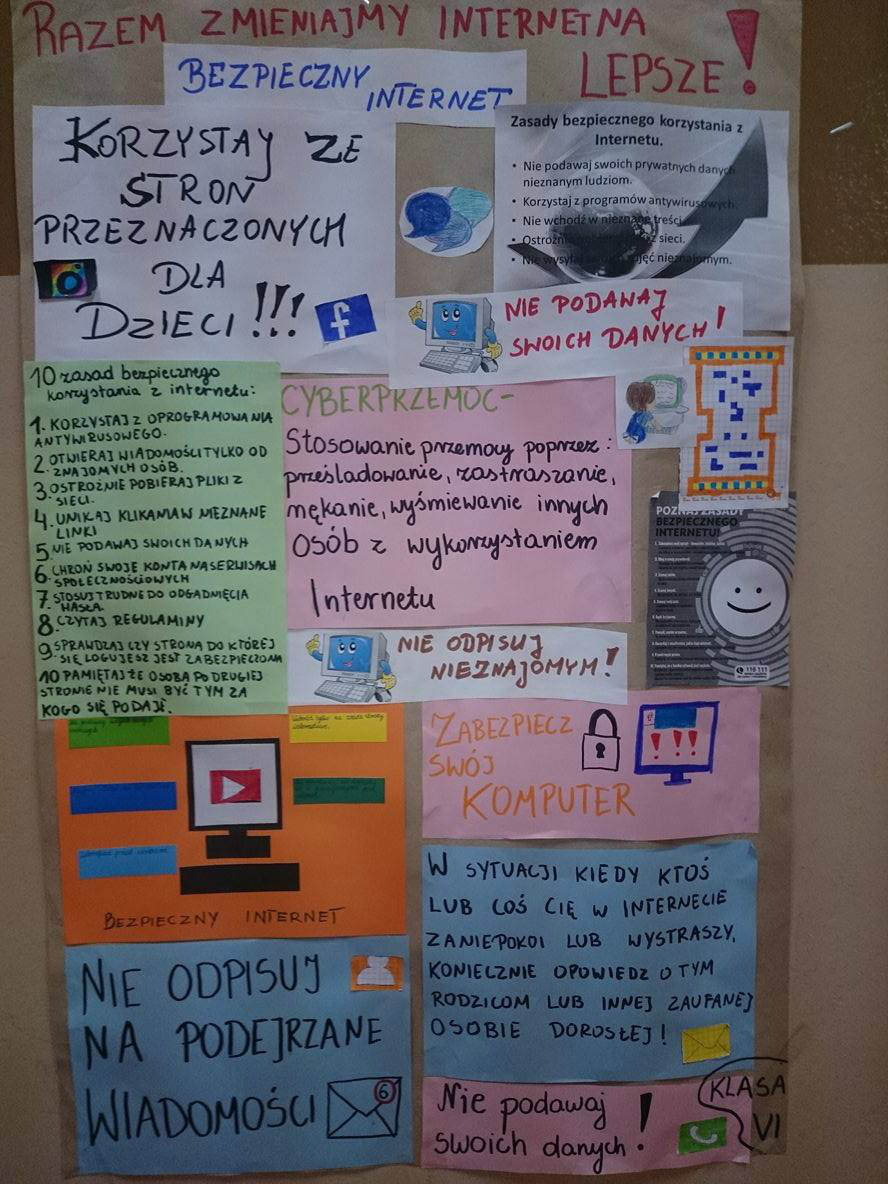 RAZEM ZMIENIAJMY INTERNET NA
LEPSZE!
BEZPIECZNY
INTERNET
KORZYSTAJ ZE
STRON
PRZEZNACZONYCH
DLA
DZIECI!!!
f
Zasady bezpiecznego korzystania z
Internetu.
• Nie podawaj swoich prywatnych danych
nieznanym ludziom.
• Korzystaj z programów antywirusowych.
• Nie wchodź w nieznane treści
• Ostrożnie z sieci.
• Nie wysyłaj zdjęć nieznajomym.
NIE PODAWAJ
SWOICH DANYCH!
10 zasad bezpiecznego
korzystania z internetu:
1. KORZYSTAJ Z OPROGRAMOWANIA
ANTYWIRUSOWEGO.
2. OTWIERAJ WIADOMOŚCI TYLKO OD
ZNAJOMYCH OSÓB.
3. OSTROŻNIE POBIERAJ PLIKI Z
SIECI.
4. UNIKAJ KLIKANIA W NIEZNANE
LINKI
5. NIE PODAWAJ SWOICH DANYCH
6. CHROŃ SWOJE KONTA NA SERWISACH
SPOŁECZNOŚCIOWYCH
7. STOSUJ TRUDNE DO ODGADNIĘCIA
HASŁA.
8. CZYTAJ REGULAMINY
9. SPRAWDZAJ CZY STRONA DO KTÓREJ
SIĘ LOGUJESZ JEST ZABEZPIECZONA
10 PAMIĘTAJ ŻE OSOBA PO DRUGIEJ
STRONIE NIE MUSI BYĆ TYM ZA
KOGO SIĘ PODAJE.
CYBERPRZEMOC-
Stosowanie przemocy poprzez:
prześladowanie, zastraszanie,
nękanie, wyśmiewanie innych
osób z wykorzystaniem
Internetu
POZNAJ ZASADY
BEZPIECZNEGO
INTERNETU!
116 111
NIE ODPISUJ
NIEZNAJOMYM!
BEZPIECZNY INTERNET
ZABEZPIECZ
SWÓJ
KOMPUTER
!!!
W SYTUACJI KIEDY KTOŚ
LUB COŚ CIĘ W INTERNECIE
ZANIEPOKOI LUB WYSTRASZY,
KONIECZNIE OPOWIEDZ O TYM
RODZICOM LUB INNEJ ZAUFANEJ
OSOBIE DOROSŁEJ!
NIE ODPISUJ
NA PODEJRZANE
WIADOMOŚCI
6
Nie podawaj
swoich danych!
KLASA
VI